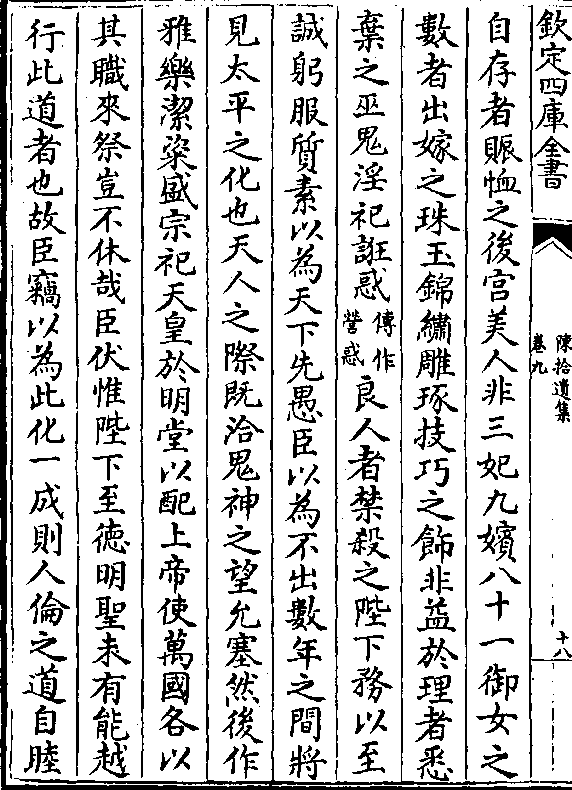 欽定四庫全書
陳拾遺集
卷九
十八
自存者賑恤之後宮美人非三妃九嬪八十一御女之
數者出嫁之珠玉錦繡雕琢技巧之飾非益於理者悉
棄之巫鬼淫祀誑惑傳作營惑良人者禁殺之陛下務以至
誠躬服質素以為天下先愚臣以為不出數年之間將
見太平之化也天人之際既洽鬼神之望允塞然後作
雅樂潔粢盛宗祀天皇於明堂以配上帝使萬國各以
其職來祭豈不休哉臣伏惟陛下至徳明聖未有能越
行此道者也故臣竊以為此化一成則人倫之道自睦